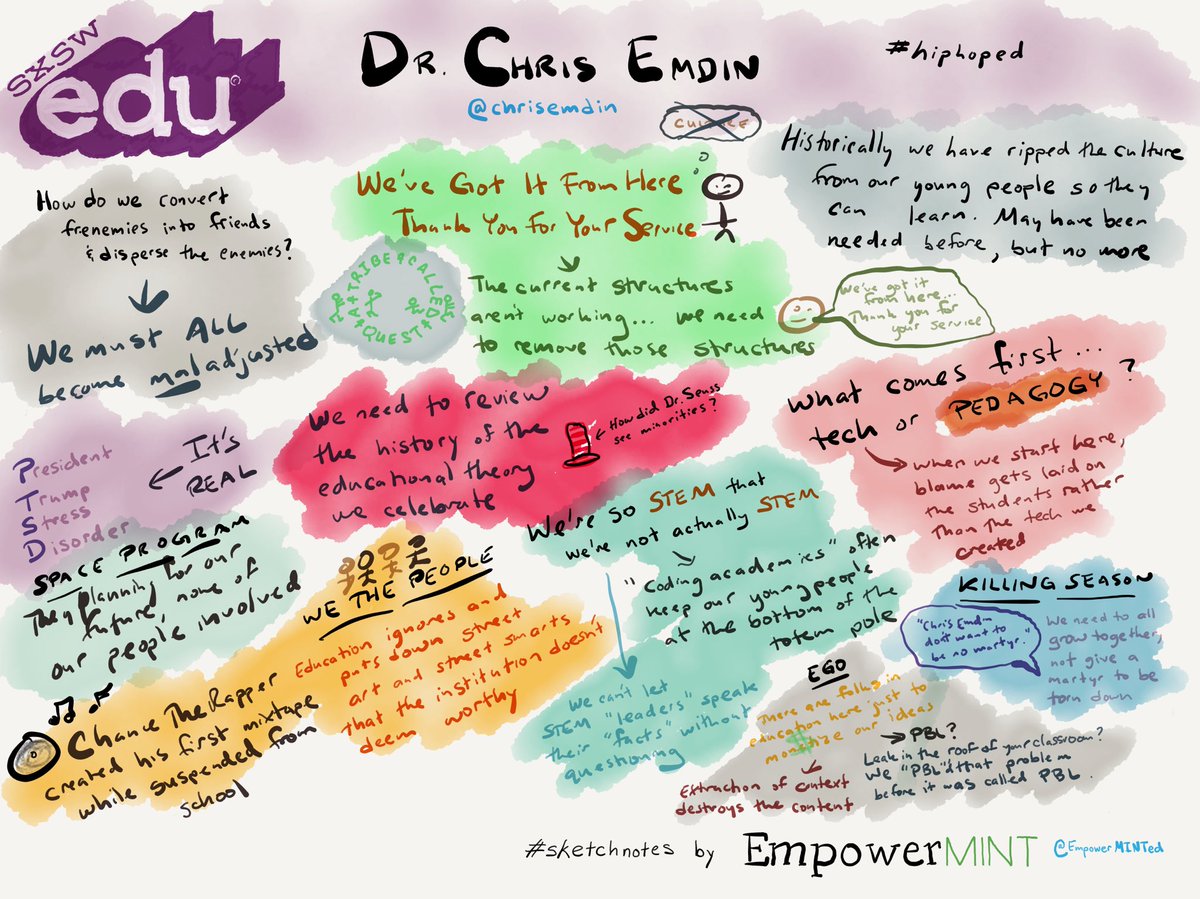 SXSW
edu
DR. CHRIS EMDIN
@chrisemdin
#hiphoped
CULTURE
How do we convert
frenemies into friends
& disperse the enemies?
We must ALL
become maladjusted
We've Got It From Here
Thank You For Your Service
A TRIBE CALLED
QUEST
The current structures
aren't working... we need
to remove those structures
We've got it
from here...
Thank you for
your service
Historically we have ripped the culture
from our young people so they
can learn. May have been
needed before, but no more
President
Trump
Stress
Disorder
It's
REAL
We need to review
the history of the
educational theory
we celebrate
How did Dr. Seuss
see minorities?
What comes first...
tech or PEDAGOGY?
when we start here,
blame gets laid on
the students rather
than the tech we
created
SPACE PROGRAM
They planning for our
future, none of
our people involved
WE THE PEOPLE
Education ignores and
puts down street
art and street smarts
that the institution doesn't
deem worthy
Chance The Rapper
created his first mixtape
while suspended from
school
We're so STEM that
we're not actually STEM
"Coding academies" often
keep our young people
at the bottom of the
totem pole
We can't let
STEM "leaders" speak
their "facts" without
questioning
KILLING SEASON
"Chris Emdin
don't want to
be no martyr."
We need to all
grow together,
not give a
martyr to be
torn down
EGO
There are folks in
education here just to
monetize our ideas
Extraction of context
destroys the content
PBL?
Leak in the roof of your classroom?
We "PBL"d that problem
before it was called PBL.
#sketchnotes by EmpowerMINT @EmpowerMINTed